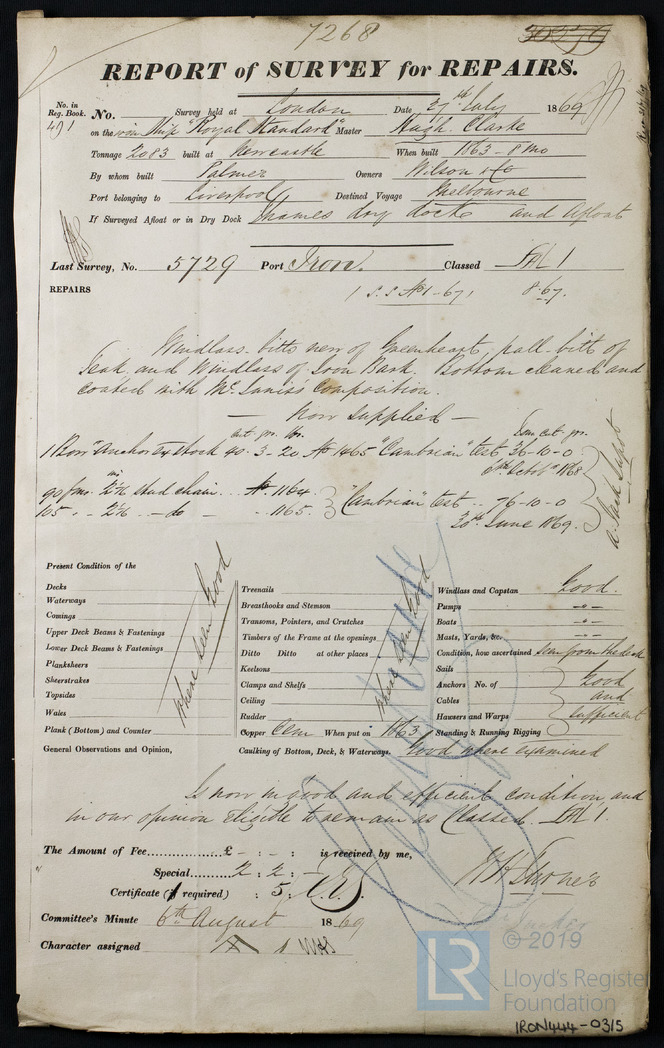 7268
REPORT of SURVEY for REPAIRS.
No. in Reg. Book. 491 No. Survey held at London Date 27th July 1869
on the Iron Ship "Royal Standard" Master Hugh Clarke
Tonnage 2083 built at Newcastle When built 1863-8mo
By whom built Palmer Owners Wilson & Co
Port belonging to Liverpool Destined Voyage Melbourne
If Surveyed Afloat or in Dry Dock Thames dry dock and Afloat
Last Survey, No. 5729 Port Iron. Classed A1
REPAIRS
1 S.S No1-67, 8-67.
Windlass bitts new of Greenheart, pall-bitt of
Teak and Windlass of Iron Bark. Bottom cleaned and
coated with Mc Innis's Composition.
— Now Supplied —
cwt. qrs. lbs.
1 Bow Anchor ex stock 40.3.20 No 1465 "Cambrian" test 36-10-0
Octobr 1868
90 fms. 2 1/16 in stud chain No. 1164
105 .. 2 1/16 - do .. 1165. "Cambrian" test .. 76-10-0
30th June 1869.
Present Condition of the
Decks
Waterways
Comings
Upper Deck Beams & Fastenings
Lower Deck Beams & Fastenings
Planksheers
Sheerstrakes
Topsides
Wales
Plank (Bottom) and Counter
where seen Good
Treenails
Breasthooks and Stemson
Transoms, Pointers, and Crutches
Timbers of the Frame at the openings
Ditto Ditto at other places
Keelsons
Clamps and Shelfs
Ceiling
Rudder
where seen Good
Copper Cem When put on 1863
Windlass and Capstan Good.
Pumps -o-
Boats -o-
Masts, Yards, &c. -o-
Condition, how ascertained seen from the deck
Sails
Anchors No. of
Cables
Hawsers and Warps
Standing & Running Rigging
Good and sufficient
General Observations and Opinion,
Caulking of Bottom, Deck, & Waterways. Good where examined
Is now in good and efficient condition, and
in our opinion eligible to remain as Classed A1.
The Amount of Fee £ - : - : is received by me,
Special 2 : 2 : -
Certificate (if required) : 5 :
Committee's Minute 6th August 1869
Character assigned A 1
LR
© 2019
Lloyd's Register
Foundation
IRON444-0315